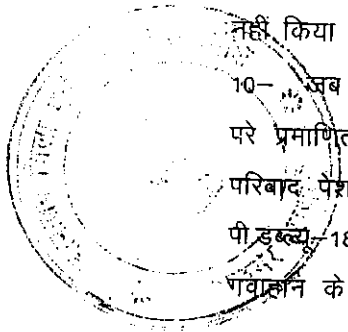 नहीं किया
10- जब
परे प्रमाणित
परिबाद पेश
पी.डब्ल्यू-18
गवाहान के